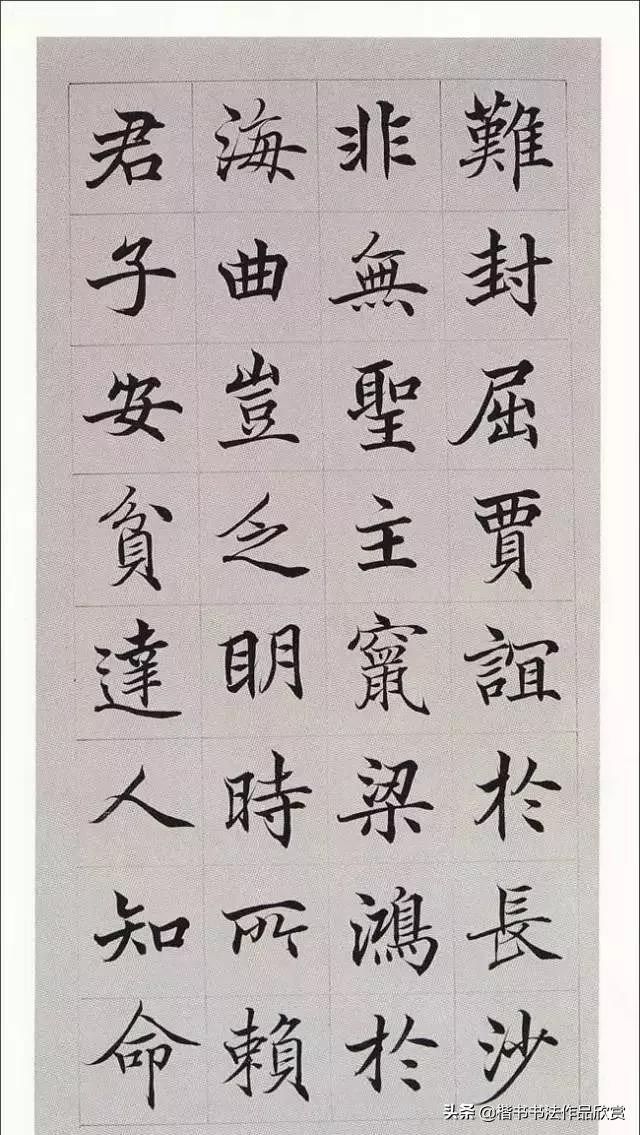 難封屈賈誼於長沙
非無聖主竄梁鴻於
海曲豈乏明時所賴
君子安貧達人知命
头条@楷书书法作品欣赏